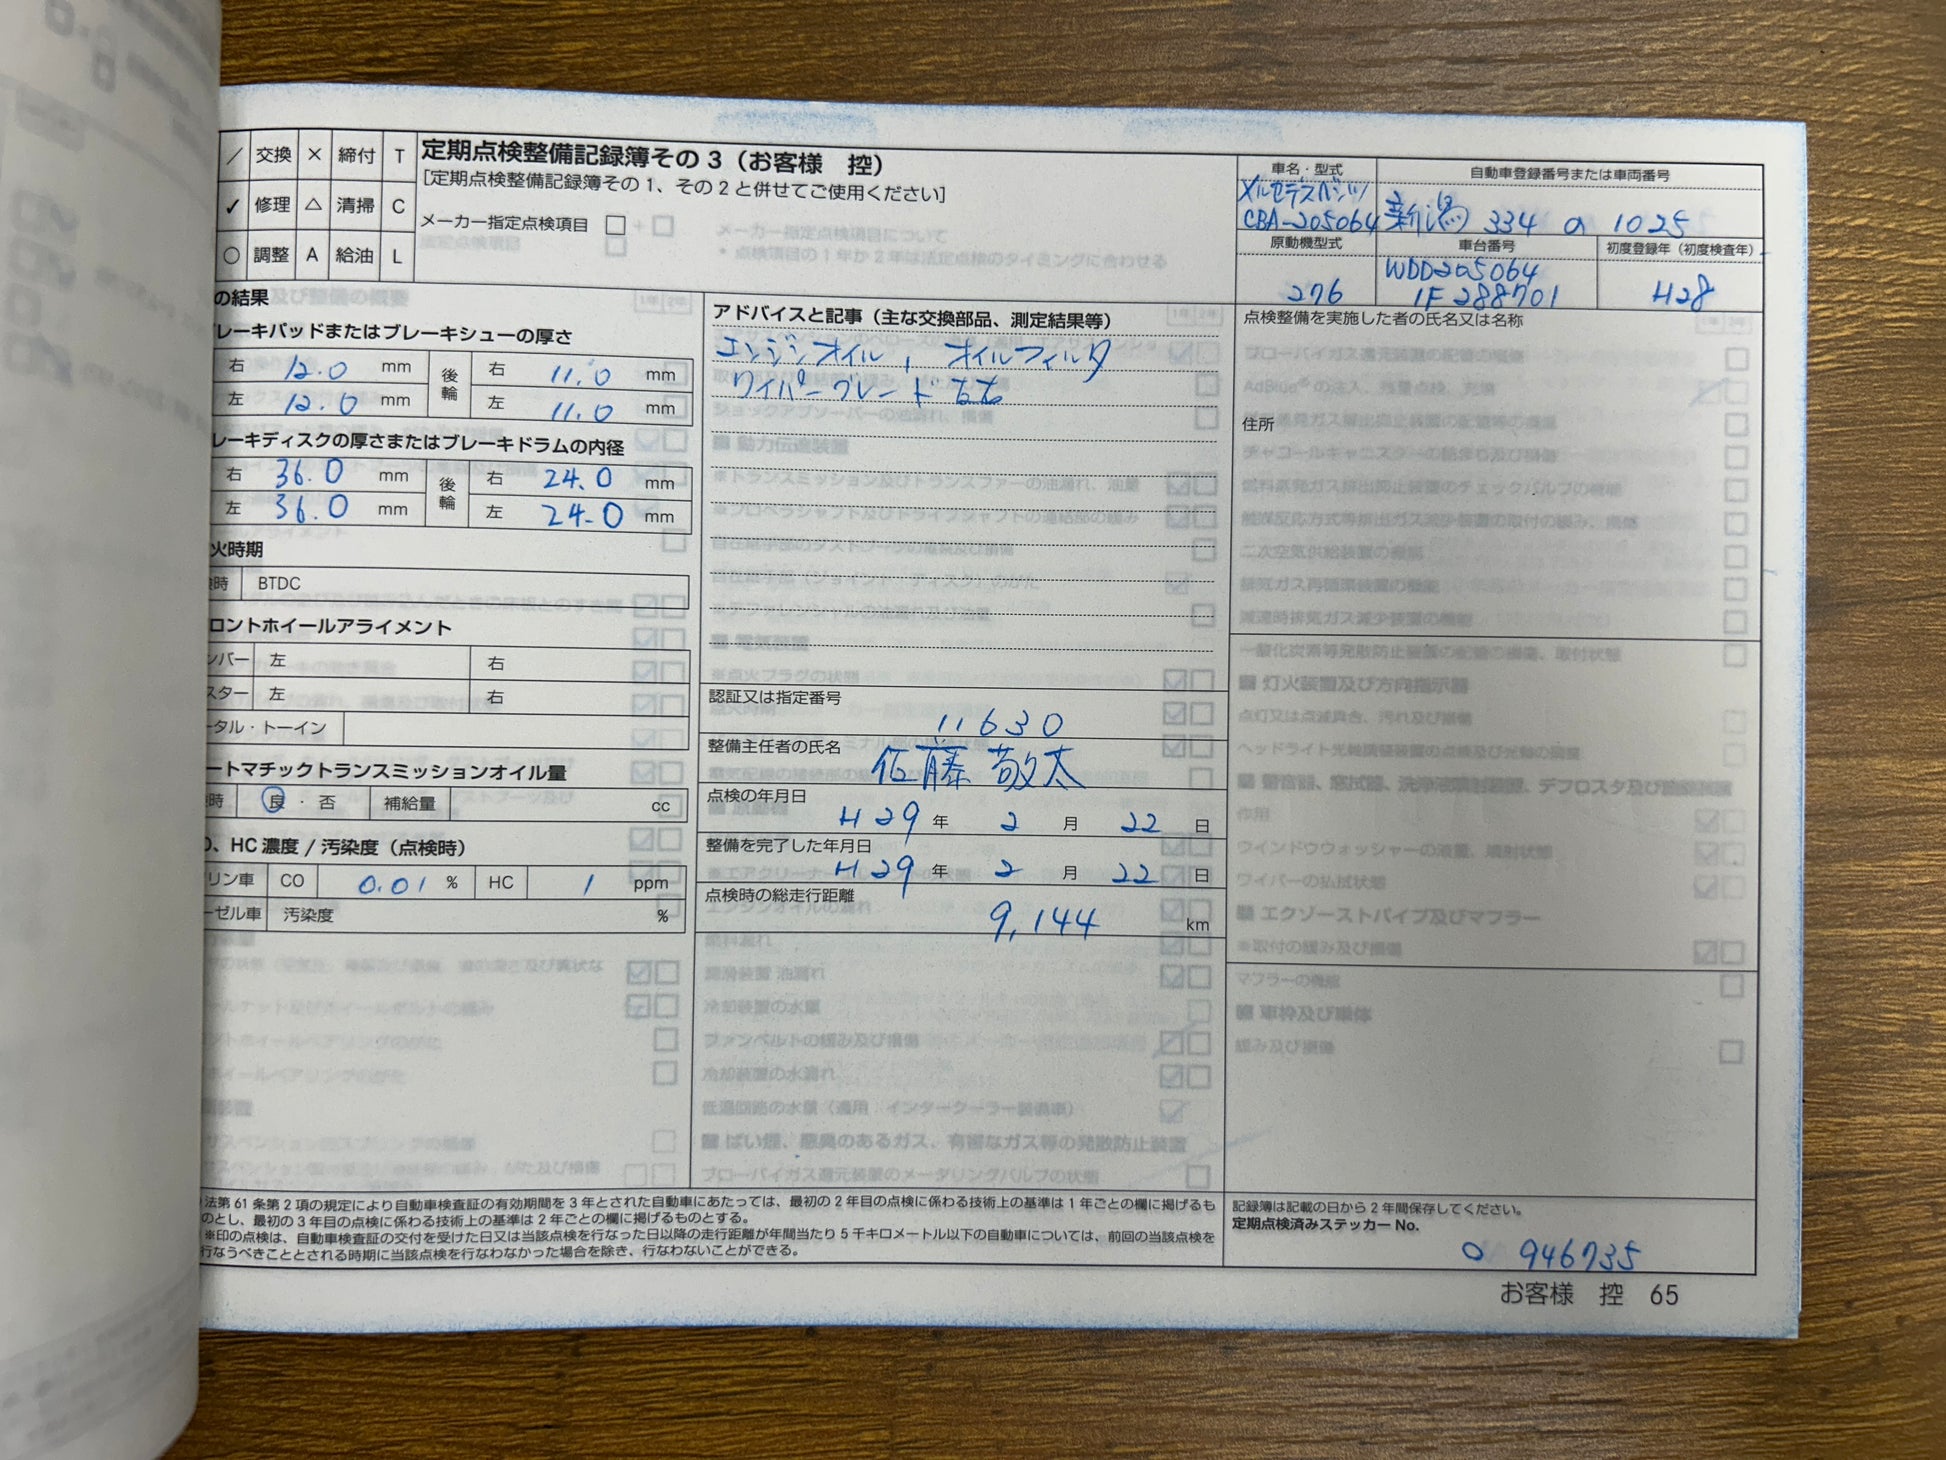 ／ 交換 × 締付 T
✓ 修理 △ 清掃 C
○ 調整 A 給油 L
定期点検整備記録簿その3（お客様　控）
［定期点検整備記録簿その1、その2と併せてご使用ください］
メーカー指定点検項目 □
車名・型式
メルセデスベンツ
CBA-205064
自動車登録番号または車両番号
新潟 334 の 1025
原動機型式
276
車台番号
WDD205064
1F288701
初度登録年（初度検査年）
H28
の結果
レーキパッドまたはブレーキシューの厚さ
右 12.0 mm 後輪 右 11.0 mm
左 12.0 mm 左 11.0 mm
レーキディスクの厚さまたはブレーキドラムの内径
右 36.0 mm 後輪 右 24.0 mm
左 36.0 mm 左 24.0 mm
火時期
時 BTDC
ロントホイールアライメント
ンバー 左 右
スター 左 右
ータル・トーイン
ートマチックトランスミッションオイル量
時 良・否 補給量 cc
、HC濃度 / 汚染度（点検時）
リン車 CO 0.01 % HC 1 ppm
ーゼル車 汚染度 %
アドバイスと記事（主な交換部品、測定結果等）
エンジンオイル, オイルフィルタ
ワイパーブレード 左右
認証又は指定番号
11630
整備主任者の氏名
佐藤 敬太
点検の年月日
H29 年 2 月 22 日
整備を完了した年月日
H29 年 2 月 22 日
点検時の総走行距離
9,144 km
点検整備を実施した者の氏名又は名称
住所
法第61条第2項の規定により自動車検査証の有効期間を3年とされた自動車にあたっては、最初の2年目の点検に係わる技術上の基準は1年ごとの欄に掲げるも
のとし、最初の3年目の点検に係わる技術上の基準は2年ごとの欄に掲げるものとする。
※印の点検は、自動車検査証の交付を受けた日又は当該点検を行なった日以降の走行距離が年間当たり5千キロメートル以下の自動車については、前回の当該点検を
行なうべきこととされる時期に当該点検を行なわなかった場合を除き、行なわないことができる。
記録簿は記載の日から2年間保存してください。
定期点検済みステッカーNo.
0 946735
お客様　控　65